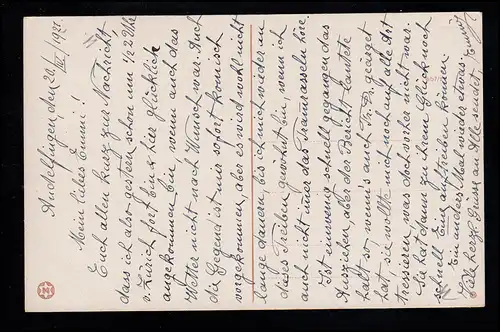 Andelfingen, den 20. III. 1921.
Mein liebes Emmi!
Euch allen kurz zur Nachricht
dass ich also gestern schon um 1/2 2 Uhr
v. Zürich fort bin & hier glücklich
angekommen bin, wenn auch das
Wetter nicht nach Wunsch war. Auch
die Gegend ist mir sofort komisch
vorgekommen, aber es wird wohl nicht
lange dauern, bis ich mich wieder an
dieses Treiben gewohnt bin, wenn ich
auch nicht immer das Tramrasseln höre.
Ist ein wenig schnell gegangen das
Ausziehen, aber der Bericht lautete
halt so wenn's auch Fr. Dr. geärget
hat, sie wollte mich noch auf alle Art
tressieren, was doch vorher nicht war.
Sie hat dann zu ihrem Glück noch
schnell Eine auftreiben können.
Ein anders Mal wieder etwas.
Viele herzl. Grüsse an Alle sendet